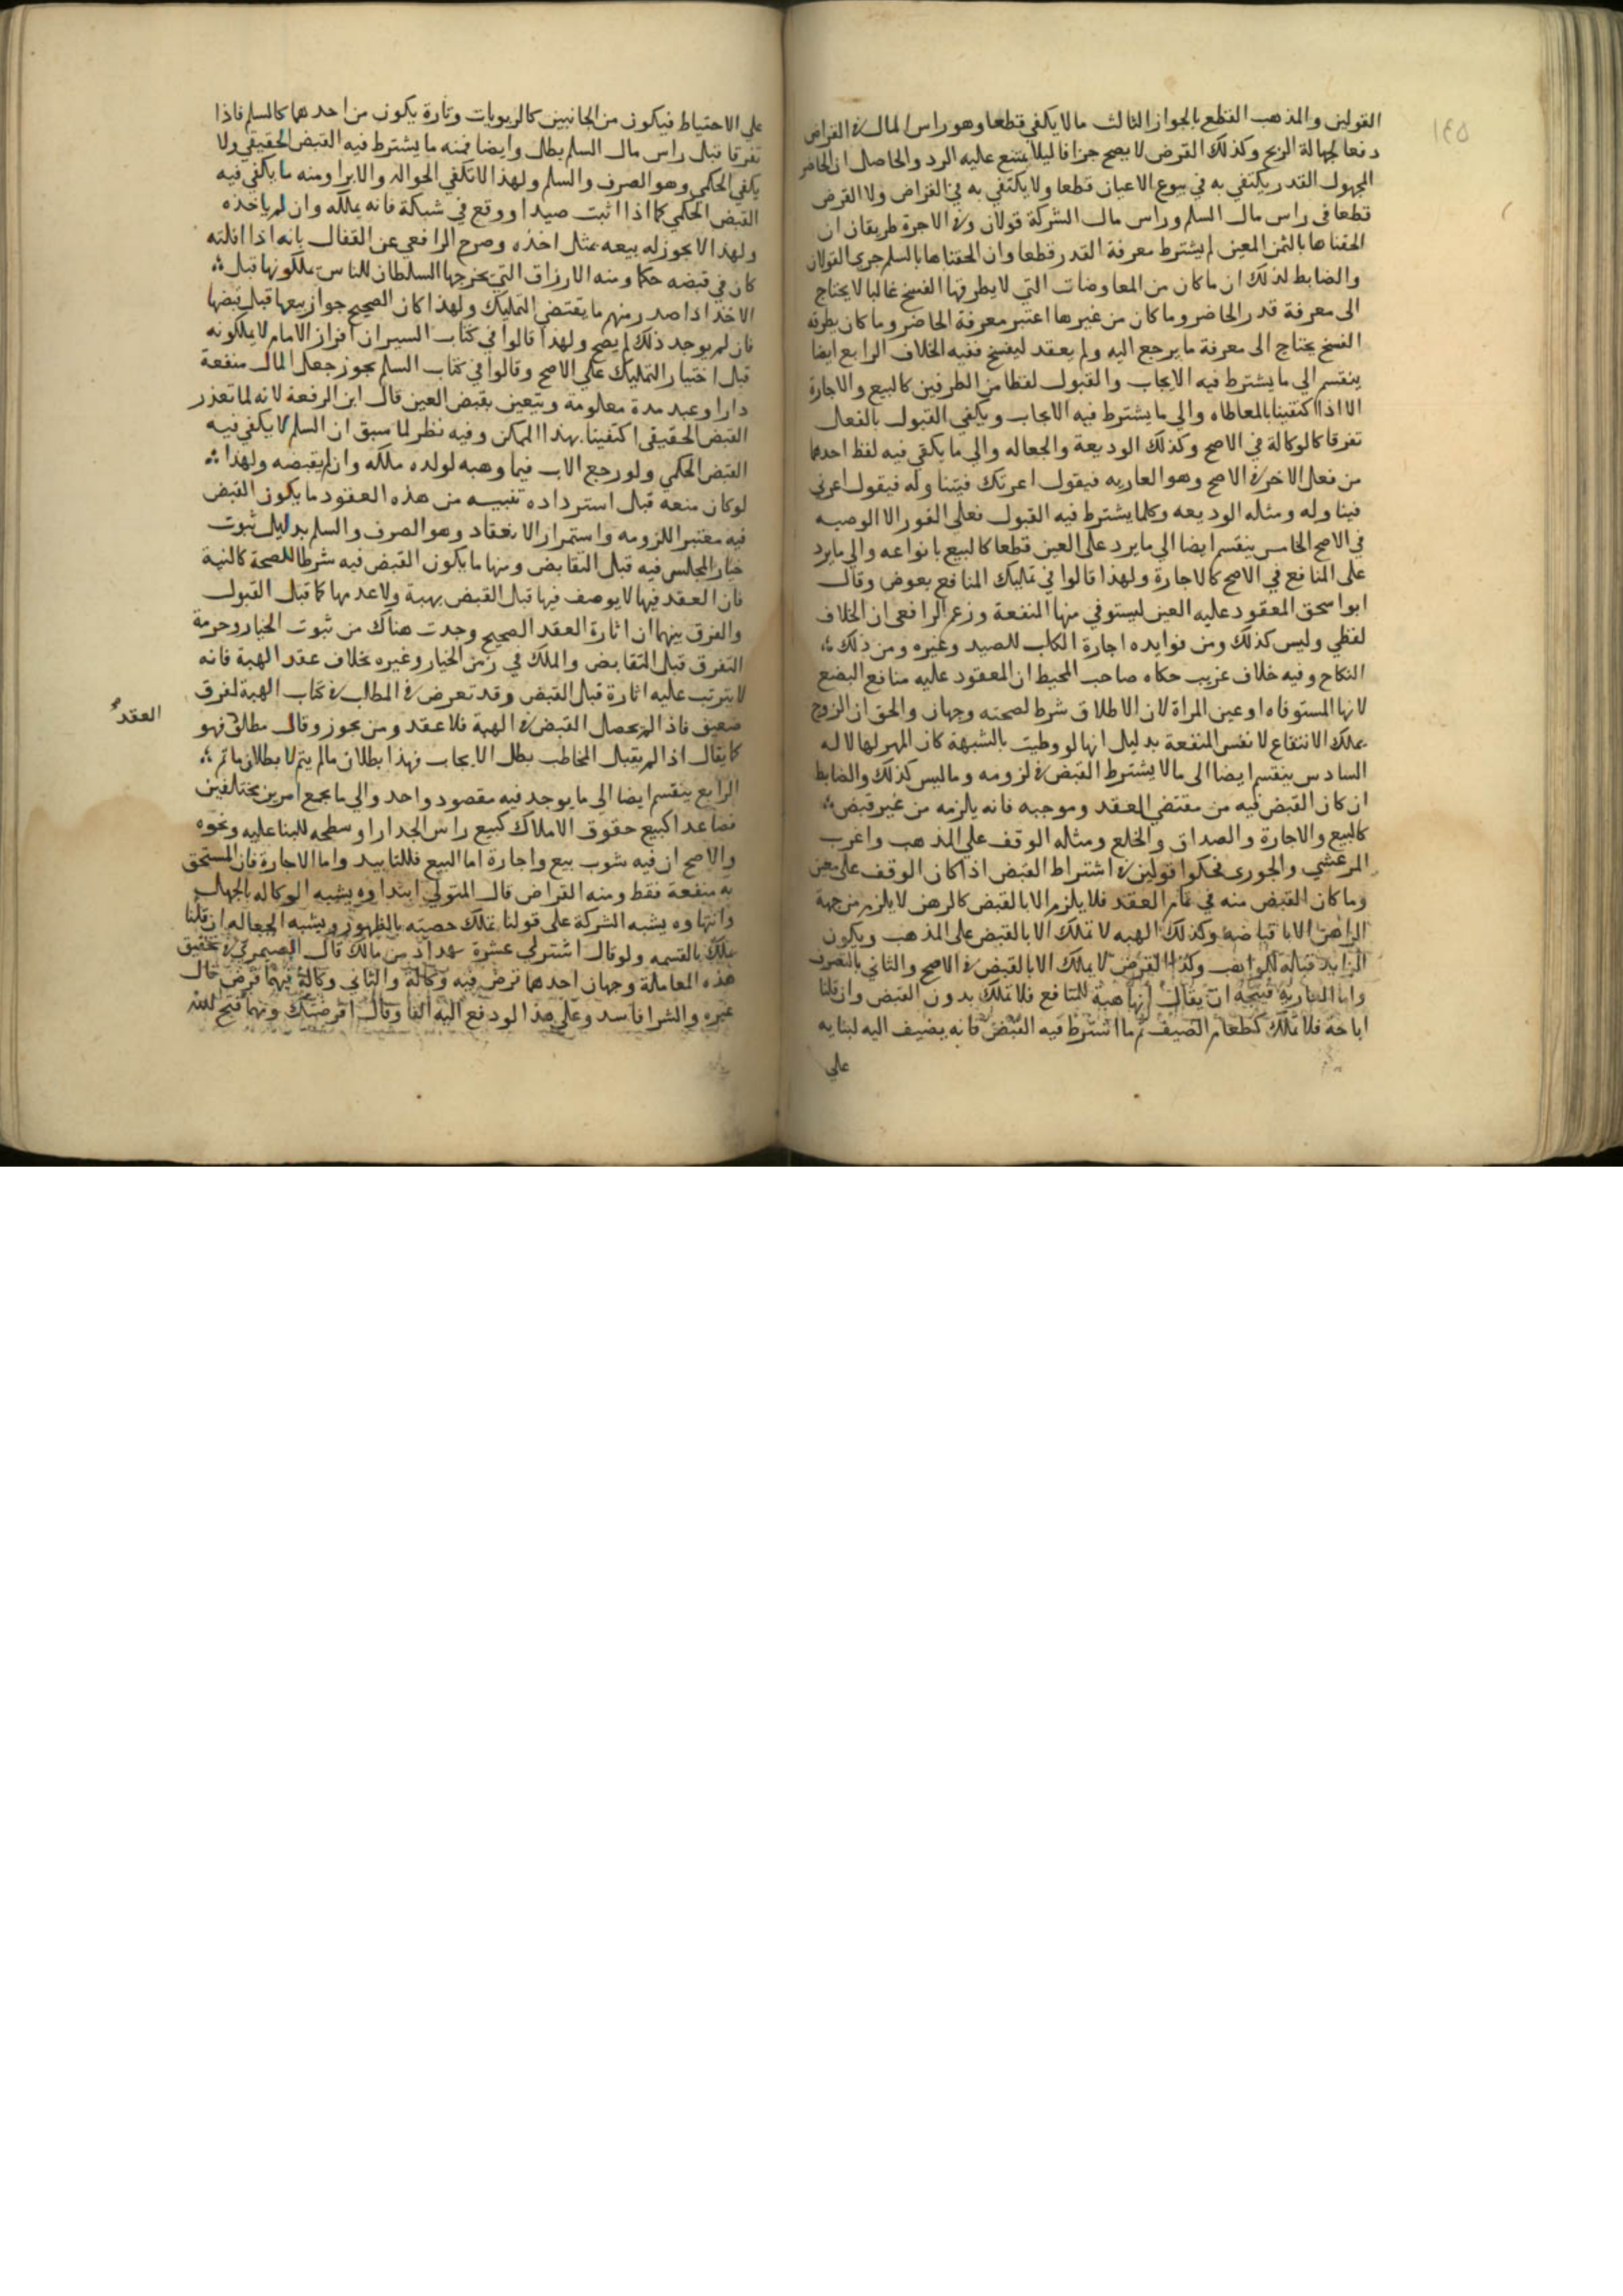 ١٤٥
القولين والمذهب القطع بالجواز الثالث ما لا يكفي قطعا وهو راس المال في القراض
دفعا لجهالة الربح وكذلك القرض لا يصح جزافا ليلا يمتنع عليه الرد والحاصل ان الحاضر
المجهول القدر يكتفي به في بيوع الاعيان قطعا ولا يكتفي به في القراض ولا القرض
قطعا في راس مال السلم وراس مال الشركة قولان وفي الاجرة طريقان ان
الحقناها بالثمن المعين لم يشترط معرفة القدر قطعا وان الحقناها بالسلم جري القولان
والضابط لذلك ان ما كان من المعاوضات التي لا يطرقها الفسخ غالبا لا يحتاج
الى معرفة قدر الحاضر وما كان من غيرها اعتبر معرفة الحاضر وما كان يطرقه
الفسخ يحتاج الى معرفة ما يرجع اليه ولم يعقد ليفسخ ففيه الخلاف الرابع ايضا
ينقسم الي ما يشترط فيه الايجاب والقبول لفظا من الطرفين كالبيع والاجارة
الا اذا اكتفينا بالمعاطاه والي ما يشترط فيه الايجاب ويكفي القبول بالفعل
تفرقا كالوكالة في الاصح وكذلك الوديعة والجعاله والي ما يكتفي فيه لفظ احدهما
من فعل الاخر في الاصح وهو العاريه فيقول اعرتك فيتناوله فيقول اعرني
فيناوله ومثله الوديعه وكلما يشترط فيه القبول فعلي الفور الا الوصيه
في الاصح الخامس ينقسم ايضا الي ما يرد على العين قطعا كالبيع بانواعه والي ما يرد
على المنافع في الاصح كالاجارة ولهذا قالوا في تمليك المنافع بعوض وقال
ابو اسحق المعقود عليه العين ليستوفي منها المنفعة وزعم الرافعي ان الخلاف
لفظي وليس كذلك ومن فوايده اجارة الكلب للصيد وغيره ومن ذلك
النكاح وفيه خلاف غريب حكاه صاحب المحيط ان المعقود عليه منافع البضع
لانها المستوفاه او عين المراة لان الاطلاق شرط لصحته وجهان والحق ان الزوج
يملك الانتفاع لا نفس المنفعة بدليل انها لو وطيت بالشبهة كان المهر لها لا له
السادس ينقسم ايضا الى ما لا يشترط القبض في لزومه وما ليس كذلك والضابط
ان كان القبض فيه من مقتضي العقد وموجبه فانه يلزمه من غير قبض
كالبيع والاجارة والصداق والخلع ومثله الوقف على المذهب واغرب
المرعشي والجورى فحكوا قولين في اشتراط القبض اذا كان الوقف على معين
وما كان القبض منه في تمام العقد فلا يلزم الا بالقبض كالرهن لا يلزم من جهة
الراهن الا باقباضه وكذلك الهبه لا تملك الا بالقبض على المذهب ويكون
الزايد قباله للواهب وكذا القرض لا يملك الا بالقبض في الاصح والثاني بالتصرف
واما العارية فيتجه ان يقال انها هبة للمنافع فلا تملك بدون القبض وان قلنا
اباحة فلا تملك كطعام الضيف ثم ما اشترط فيه القبض فانه يضيف اليه لبنايه
علي
علي الاحتياط فيكون من الجانبين كالربويات وتارة يكون من احدهما كالسلم فاذا
تفرقا قبل راس مال السلم بطل وايضا فمنه ما يشترط فيه القبض الحقيقي ولا
يكفي الحكمي وهو الصرف والسلم ولهذا لا تكفي الحواله والابرا ومنه ما يكفي فيه
القبض الحكمي كما اذا اثبت صيدا ووقع في شبكة فانه يملكه وان لم ياخذه
ولهذا لا يجوز له بيعه بمثل اخذه وصرح الرافعي عن القفال بانه اذا افلته
كان في قبضه حكما ومنه الارزاق التي يخرجها السلطان للناس يملكونها قبل
الاخذ اذا صدر منهم ما يقتضي التمليك ولهذا كان الصحيح جواز بيعها قبل قبضها
فان لم يوجد ذلك لم يصح ولهذا قالوا في كتاب السير ان افراز الامام لا يملكونه
قبل اختيار التمليك علي الاصح وقالوا في كتاب السلم يجوز جعل المال منفعة
دار او عبد مدة معلومة ويتعين بقبض العين قال ابن الرفعة لانه لما تعذر
القبض الحقيقي اكتفينا بهذا الممكن وفيه نظر لما سبق ان السلم لا يكفي فيه
القبض الحكمي ولو رجع الاب فيما وهبه لولده ملكه وان لم يقبضه ولهذا
لو كان منعه قبل استرداده تنبيه من هذه العقود ما يكون القبض
فيه معتبرا للزومه واستمرار الانعقاد وهو الصرف والسلم بدليل ثبوت
خيار المجلس فيه قبل التقابض ومنها ما يكون القبض فيه شرطا للصحة كالهبة
فان العقد فيها لا يوصف فيها قبل القبض بهبة ولا عدمها كما قبل القبول
والفرق بينهما ان اثارة العقد الصحيح وجدت هناك من ثبوت الخيار وحرمة
التفرق قبل التقابض والملك في زمن الخيار وغيره بخلاف عقد الهبة فانه
لا يترتب عليه اثارة قبل القبض وقد تعرض في المطلب في كتاب الهبة لفرق
ضعيف فاذا لم يحصل القبض في الهبة فلا عقد ومن يجوز وقال مطلق فهو
العقد
كما يقال اذا لم يقبل المخاطب بطل الايجاب فهذا بطلان ما لم يتم لا بطلان ما تم
الرابع ينقسم ايضا الى ما يوجد فيه مقصود واحد والي ما يجمع امرين مختلفين
فصاعدا كبيع حقوق الاملاك كبيع راس الجدار او سطحه للبنا عليه ونحوه
والاصح ان فيه شوب بيع واجارة اما البيع فللتابيد واما الاجارة فان المستحق
به منفعة فقط ومنه القراض قال المتولي ابتداوه يشبه الوكاله بالجهالة
وانتهاوه يشبه الشركة على قولنا تملك حصته بالظهور ويشبه الجعاله ان قلنا
يملك بالقسمه ولو قال اشترلي عشرة بهذا من مالك قال الصيمري في تحقيق
هذه المعاملة وجهان احدهما قرض فيه وكالة والثاني وكالة فيها قرض قال
غيره والشرا فاسد وعلى هذا لو دفع اليه الفا وقال اقرضتك